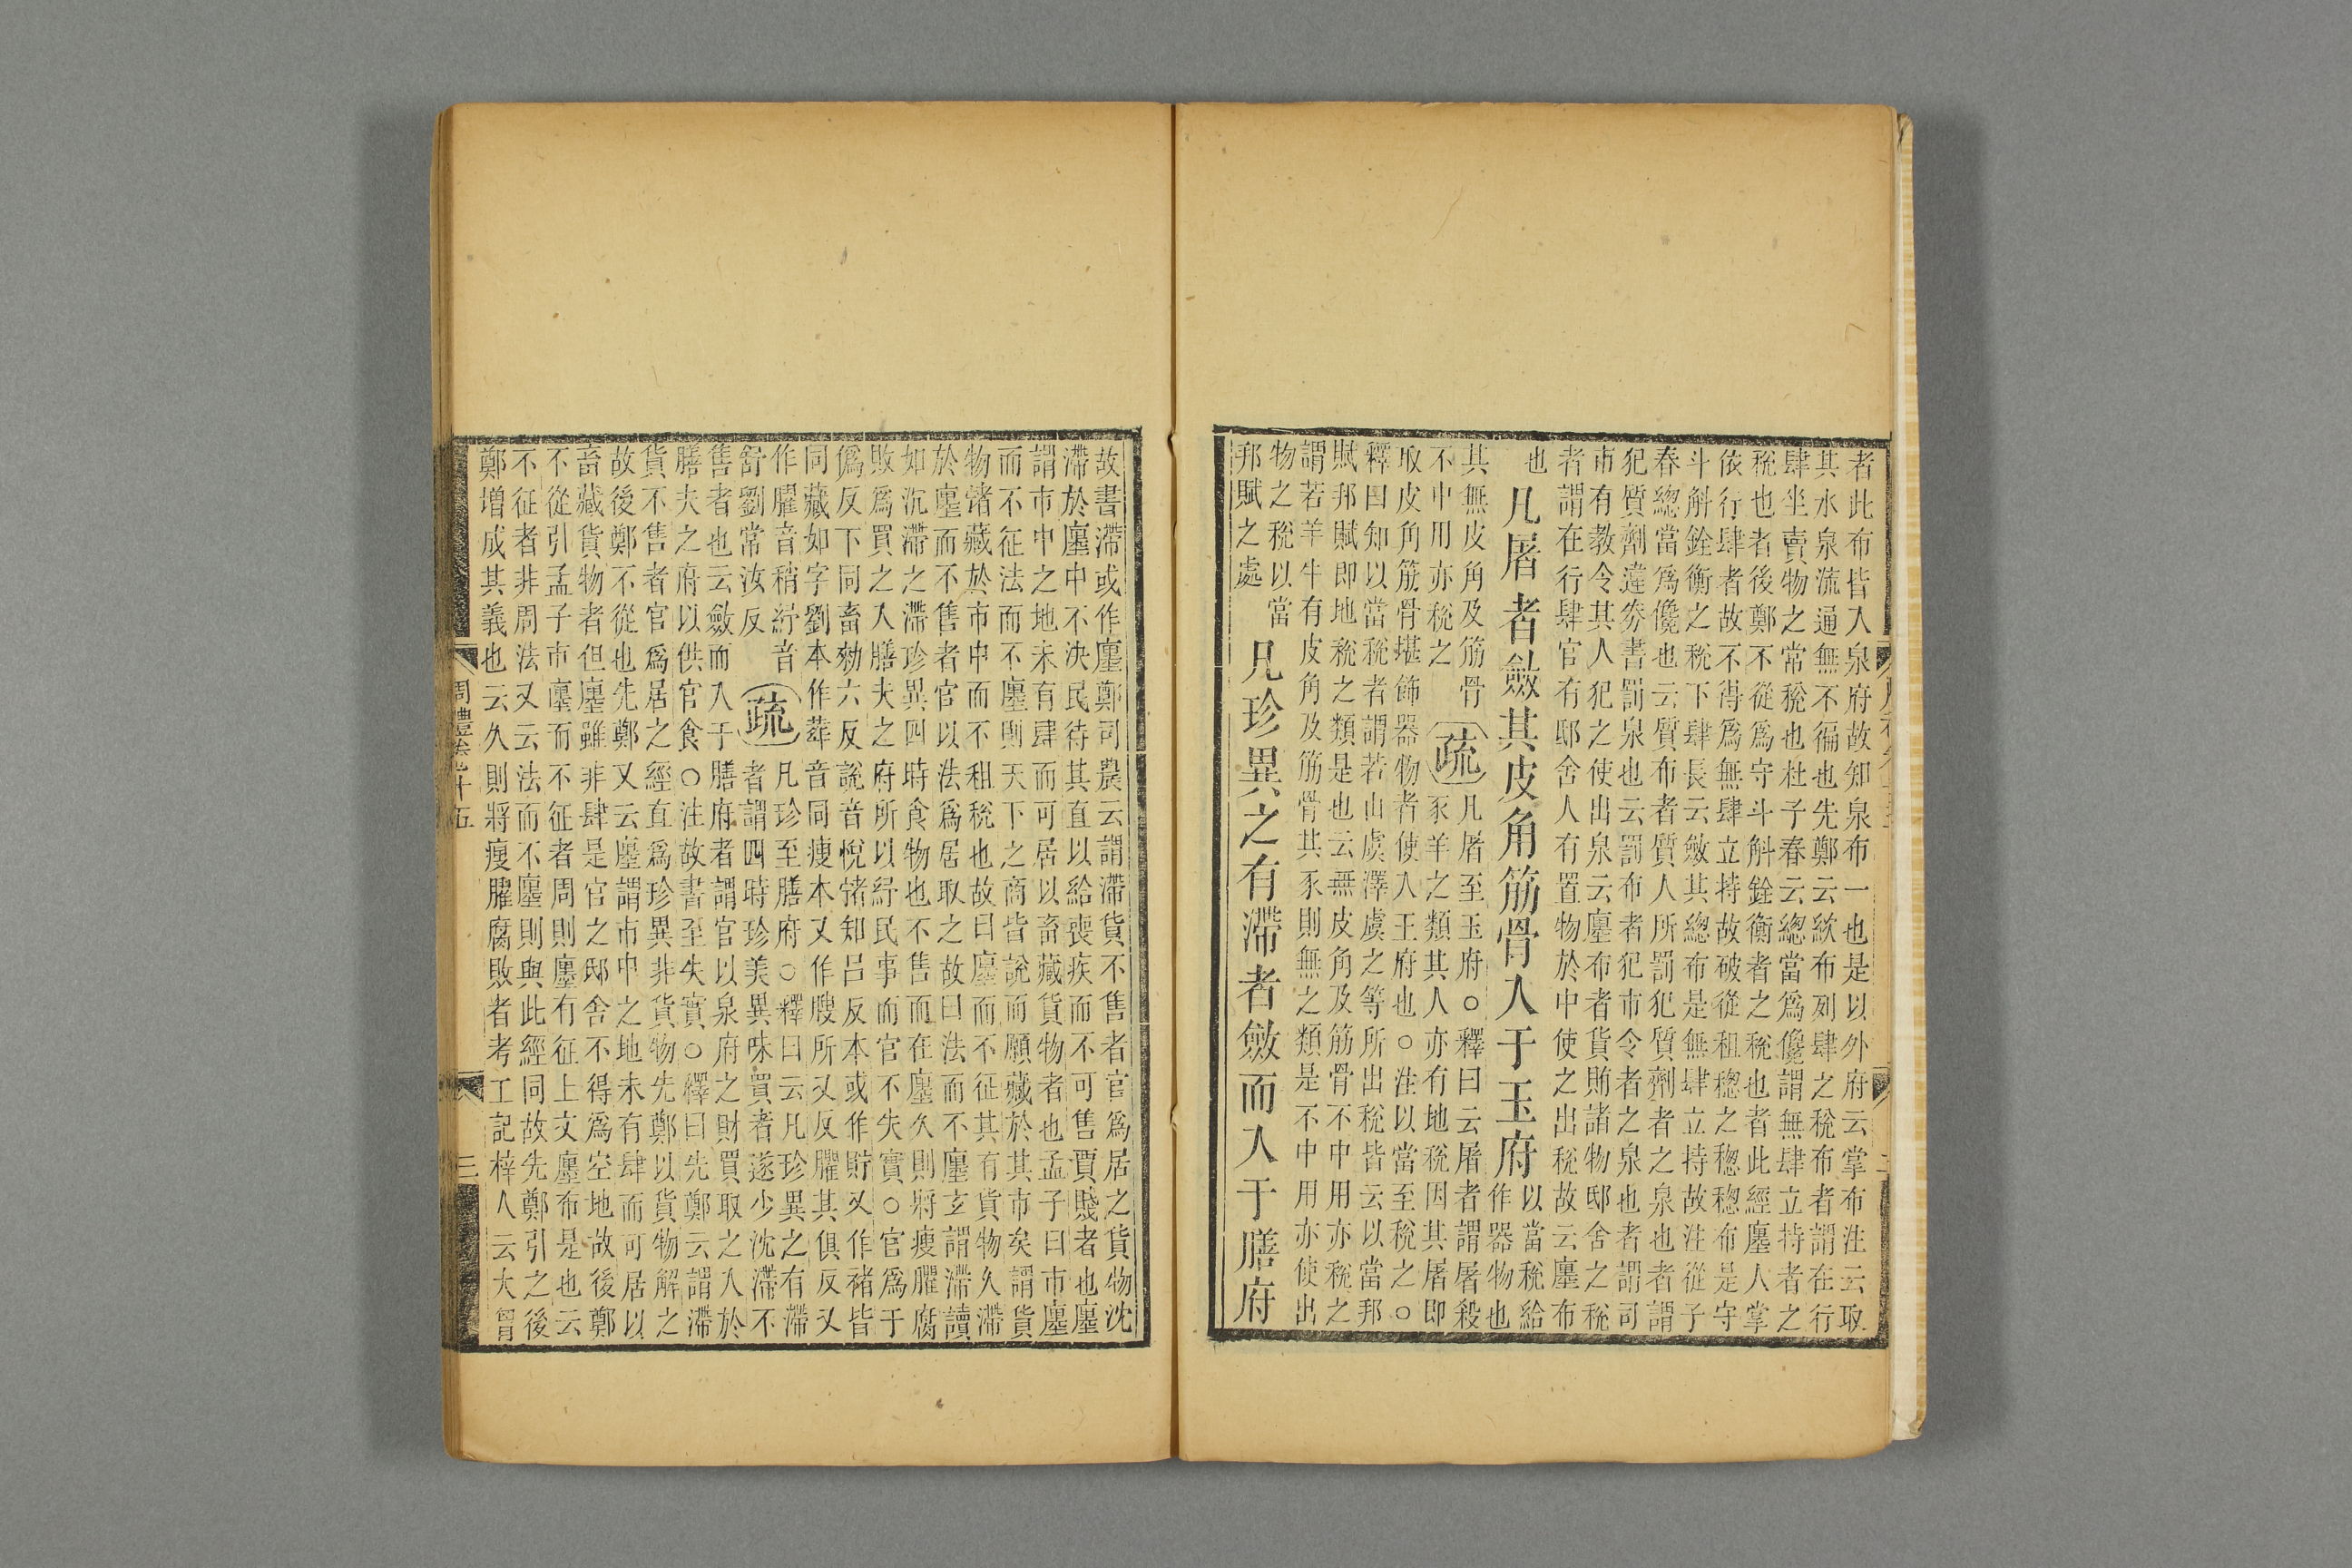 者此布皆入泉府故知泉布一也是以外府云掌布注云取
其水泉流通無不徧也先鄭云絘布列肆之稅布者謂在行
肆坐賣物之常稅也杜子春云總當爲儳謂無肆立持者之
稅也者後鄭不從爲守斗斛銓衡者之稅也者此經廛人掌
依行肆者故不得爲無肆立持故破從租稯之稯稯布是守
斗斛銓衡之稅下肆長云斂其總布是無肆立持故注從子
春總當爲儳也云質布者質人所罰犯質劑者之泉也者謂
犯質劑違券書罰泉也云罰布者犯市令者之泉也者謂司
市有教令其人犯之使出泉云廛布者貨賄諸物邸舍之稅
者謂在行肆官有邸舍人有置物於中使之出稅故云廛布
也
凡屠者斂其皮角筋骨入于玉府
以當稅給
作器物也
其無皮角及筋骨
不中用亦稅之
疏
凡屠至玉府○釋曰云屠者謂屠殺
豕羊之類其人亦有地稅因其屠即
取皮角筋骨堪飾器物者使入王府也○注以當至稅之○
釋曰知以當稅者謂若山虞澤虞之等所出稅皆云以當邦
賦邦賦即地稅之類是也云無皮角及筋骨不中用亦稅之
謂若羊牛有皮角及筋骨其豕則無之類是不中用亦使出
物之稅以當
邦賦之處
凡珍異之有滯者斂而入于膳府
故書滯或作廛鄭司農云謂滯貨不售者官爲居之貨物沈
滯於廛中不決民待其直以給喪疾而不可售賈賤者也廛
謂市中之地未有肆而可居以畜藏貨物者也孟子曰市廛
而不征法而不廛則天下之商皆說而願藏於其市矣謂貨
物㣥藏於市中而不租稅也故曰廛而不征其有貨物久滯
於廛而不售者官以法爲居取之故曰法而不廛玄謂滯讀
如沉滯之滯珍異四時食物也不售而在廛久則將瘦臞腐
敗爲買之入膳夫之府所以紓民事而官不失實○官爲于
僞反下同畜勑六反說音悅㣥知呂反本或作貯又作褚皆
同藏如字劉本作葬音同瘦本又作膄所又反臞其俱反又
作臞音稍紓音
舒劉常汝反
疏
凡珍至膳府○釋曰云凡珍異之有滯
者謂四時珍美異味買者遂少沈滯不
售者也云斂而入于膳府者謂官以泉府之財買取之入於
膳夫之府以供官食○注故書至失實○釋曰先鄭云謂滯
貨不售者官爲居之經直爲珍異非貨物先鄭以貨物解之
故後鄭不從也先鄭又云廛謂市中之地未有肆而可居以
畜藏貨物者但廛雖非肆是官之邸舍不得爲空地故後鄭
不從引孟子市廛而不征者周則廛有征上文廛布是也云
不征者非周法又云法而不廛則與此經同故先鄭引之後
鄭增成其義也云久則將瘦臞腐敗者考工記梓人云大胷
周禮卷十五
三